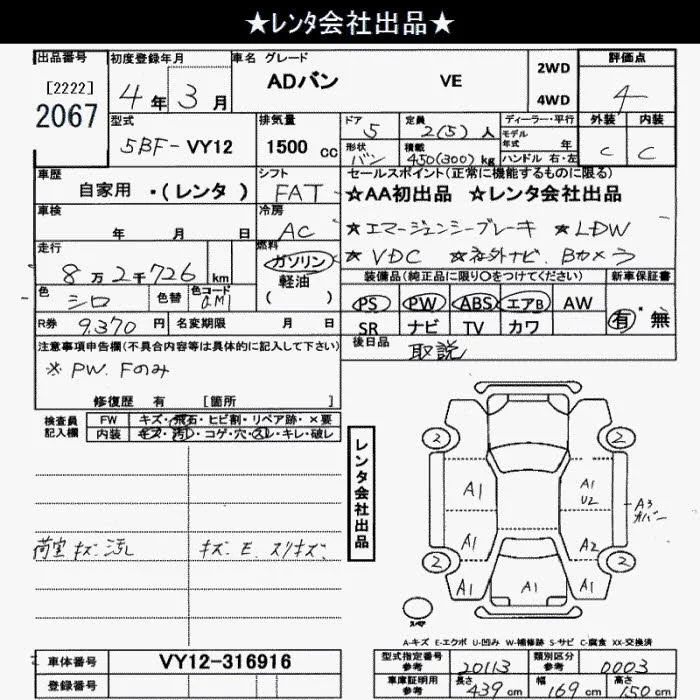 ★レンタ会社出品★
出品番号 初度登録年月 車名 グレード 評価点
[2222] 2067 4年 3月 ADバン VE 2WD 4WD 4
型式 排気量 ドア 定員 ディーラー・平行 外装 内装
5BF-VY12 1500 cc 5 2(5)人 モデル年式 年 C C
形状 積載 ハンドル 右・左
バン 450(300)kg
車歴 シフト セールスポイント(正常に機能するものに限る)
自家用 ・(レンタ ) FAT ★AA初出品 ★レンタ会社出品
車検 冷房 ★エマージェンシーブレーキ ★LDW
年 月 日 AC ★VDC ★社外ナビ. Bカメラ
走行 燃料 装備品(純正品に限り○をつけてください) 新車保証書
8万2千726km ガソリン 軽油 ( ) PS PW ABS エアB AW 有・無
色 シロ 色替 色コード SR ナビ TV カワ
R券 9,370 円 名変期限 月 日 後日品 取説
注意事項申告欄(不具合内容等は具体的に記入して下さい)
※ PW. Fのみ
修復歴 有 [箇所 ]
検査員記入欄 FW キズ・飛石・ヒビ割・リペア跡・×要
内装 キズ・汚レ・コゲ・穴・スレ・キレ・破レ
レンタ会社出品
2 2
A1 A1 U2 A3 カバー
A1 A2
2 2
A1 A1 A1
荷室キズ.汚レ キズ. E. スリキズ.
スペア
A-キズ E-エクボ U-凹み W-補修跡 S-サビ C-腐食 XX-交換済
車体番号 VY12-316916 型式指定番号 参考 20113 類別区分 参考 0003
登録番号 車庫証明用 参考 長さ 439 cm 幅 169 cm 高さ 150 cm